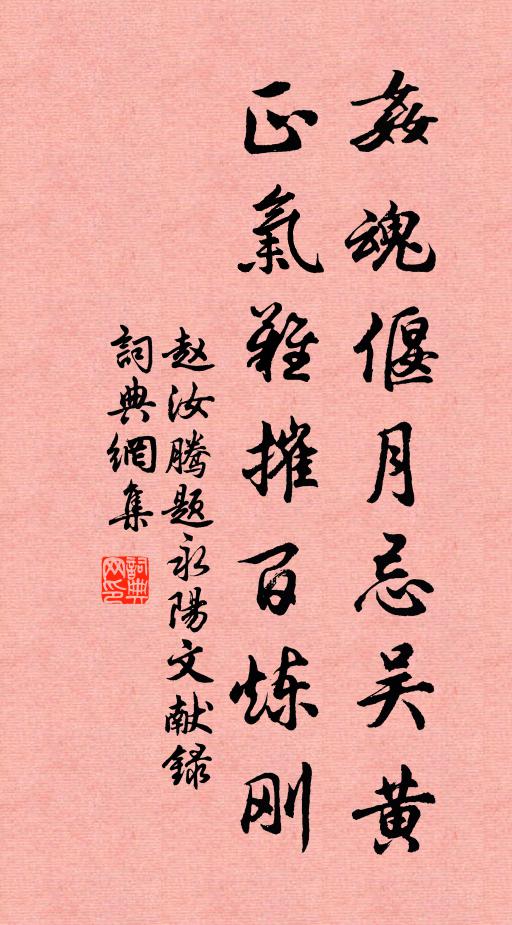 姦魂偃月忌吴黄
正氣難摧百炼刚
赵汝腾题永陽文献録
詞典網集
詞典网印